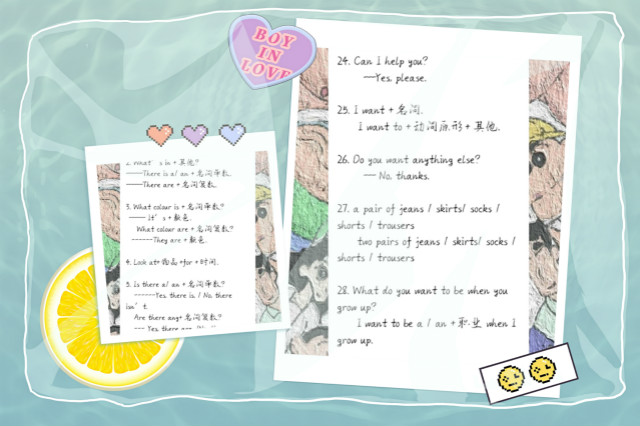 BOY
IN
LOVE
24. Can I help you?
—Yes, please.
25. I want + 名词.
I want to + 动词原形 + 其他.
26. Do you want anything else?
— No, thanks.
27. a pair of jeans / skirts/ socks /
shorts / trousers
two pairs of jeans / skirts/ socks /
shorts / trousers
28. What do you want to be when you
grow up?
I want to be a / an + 职业 when I
grow up.
2. What's in + 其他?
----There is a/ an + 名词单数.
----There are + 名词复数.
3. What colour is + 名词单数?
---- It's + 颜色.
What colour are + 名词复数?
------They are + 颜色.
4. Look at+ 物品 +for + 时间.
5. Is there a/ an + 名词单数?
------Yes, there is. / No, there
isn't.
Are there any+ 名词复数?
-- Yes, there are.